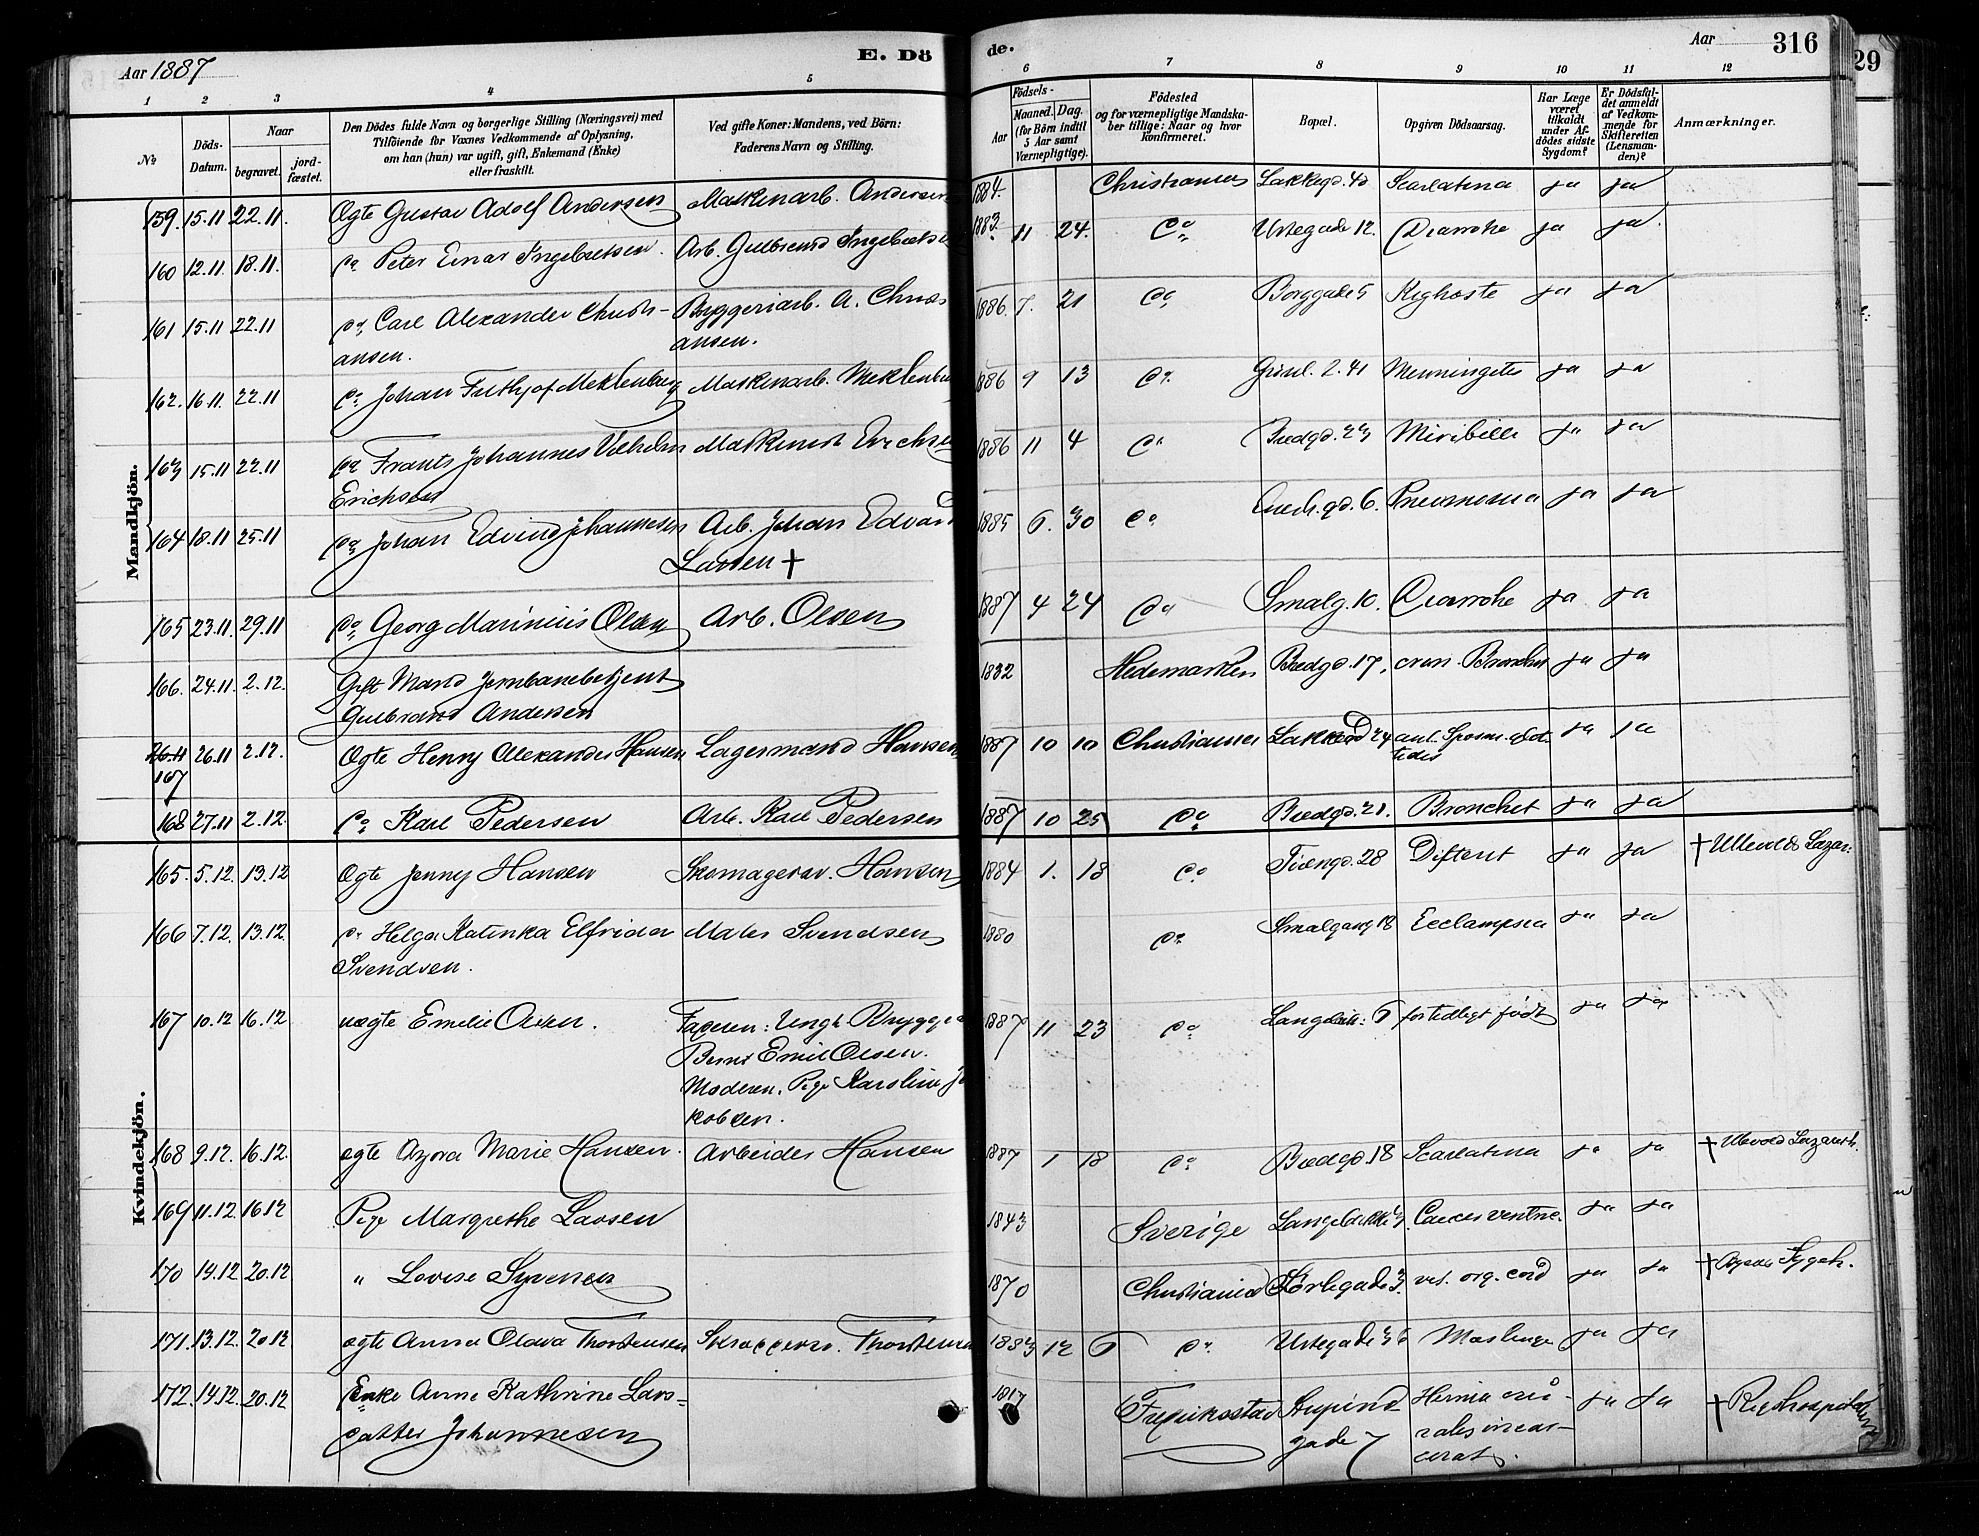 Aar 1887
E. Dö
de.
Aar
316
29
1
2
3
4
5
6
7
8
9
10
11
12
No
Döds-Datum.
Naar
begravet.
jord-fæstet.
Den Dödes fulde Navn og borgerlige Stilling (Næringsvei) med
Tilföiende for Voxnes Vedkommende af Oplysning,
om han (hun) var ugift, gift, Enkemand (Enke)
eller fraskilt.
Ved gifte Koner: Mandens, ved Börn:
Faderens Navn og Stilling.
Födsels-
Aar
Maaned. Dag.
(for Börn indtil
5 Aar samt
Værnepligtige).
Födested
og for værnepligtige Mandska-
ber tillige: Naar og hvor
konfirmeret.
Bopæl.
Opgiven Dödsaarsag.
Har Læge
været
tilkaldt
under Af-
dödes sidste
Sygdom?
Er Dödsfal-
det anmeldt
af Vedkom-
mende for
Skifteretten
(Lensman-
den)?
Anmærkninger.
Mandkjön.
159. 15.11 22.11. Ægte Gustav Adolf Andersen Maskinarb. Andersen 1884. Christiania Lakkegd. 40 Scarlatina ja ja
160 12.11 18.11. Do Peter Einar Ingebretsen. Arb. Gulbrand Ingebrets 1883. 11 24. Do Urtegade 12. Diarrohe ja ja.
161 15.11 22.11 Do Carl Alexander Christi- Bryggeriarb. A. Christi 1886. 7. 21 Do Borggade 5 Kighoste ja ja
ansen. ansen.
162. 16.11. 22.11 Do Johan Frithjof Meklenburg Maskinarb. Meklenbu 1886 9 13 Do Grönl. 2.41 Menningetes ja ja
163 15.11 22.11 Do Frants Johannes Vilhelm Maskinist Erichse 1886 11 4 Do Bredgd. 23 ja ja
Erichsen
164 18.11 25.11 Do Johan Edvind Johannesen Arb. Johan Edvar 1885 6. 30 Do 6. Pneumonia ja ja
Larsen †
165 23.11. 29.11 Do Georg Marinius Olsen Arb. Olsen 1887 4 24 Do Smalg. 10. Diarrohe ja ja
166. 24.11. 2.12. Gift Mand Jernbanebetjent 1832 Hedemarken Bredgd. 17, cron. Bronchit ja ja
Gulbrand Andersen
167 26.11 2.12. Ægte Henry Alexander Hansen Lagermand Hansen 1887 10 10 Christiania Lakkegd 24 ja ja
168 27.11 2.12. Do Karl Pedersen Arb. Karl Pedersen 1887 10 25 Do Bredgd. 21. Bronchit ja ja
Kvindekjön.
165. 5.12. 13.12 Ægte Jenny Hansen Skomagersv. Hansen 1884 1. 18 Do Tøiengd. 28 Difterit ja ja † Ullevolds Lazar:
166 7.12. 13.12. Do Helga Katinka Elfrida Maler Svendsen 1880 Do Smalgang 18 Ecclampsia ja ja
Svendsen.
167 10.12 16.12 uægte Emelie Olsen. Faderen: Ungk. Brygge 1887 11 23 Do 6 for tidligt født ja ja
Bernt Emil Olsen.
Moderen. Pige Karoline Ja
kobsen.
168 9.12. 16.12. ægte Azora Marie Hansen. Arbeider Hansen 1887 1 18 Do Bredgd. 18 Scarlatina ja ja † Ullevold Lazareth.
169 11.12. 16.12 Pige Margrethe Larsen 1843 Sverige Cancer ventric. ja ja
170 14.12 20.12 " Lovise Syversen 1870 Christiania Sørligade 3. vit. org. cord ja ja
171. 13.12. 20.12 ægte Anna Olava Thorstensen Thorstensen 1883 12 6 Do Urtegade 36 Meslinge ja ja
172. 14.12. 20.12 Enke Anne Kathrine Lars- 1817 Fredriksstad Hernia cru- ja ja † Rigshospitalet
datter Johannesen gade 7 ralis incar-
cerat.